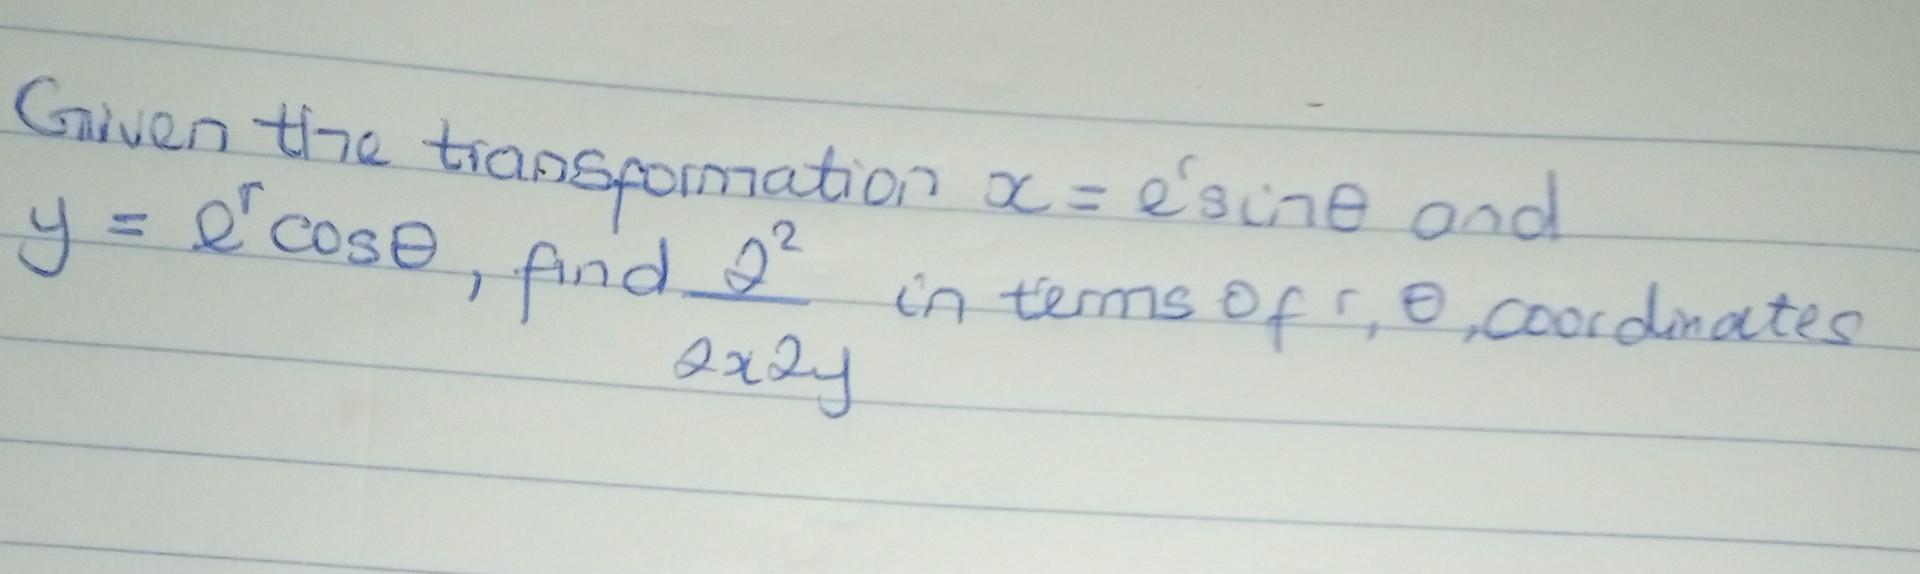 Given the transformation x = e^r sinθ and
y = e^r cosθ, find ∂²/∂x∂y in terms of r, θ, coordinates